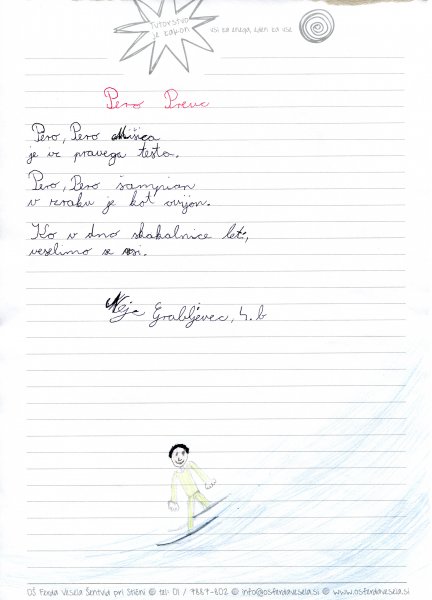 Tutorstvo
je zakon
vsi za enega, eden za vse
Pero Prevc
Pero, Pero Mišica
je iz pravega testa.
Pero, Pero šampian
v zraku je kot avijon.
Ko v dno skakalnice leti,
veselimo se vsi.
Neja Grabljevec, 4. b
OŠ Ferda Vesela Šentvid pri Stični @ tel: 01 / 7887-802 @ info@osferdavesela.si @ www.osferdavesela.si